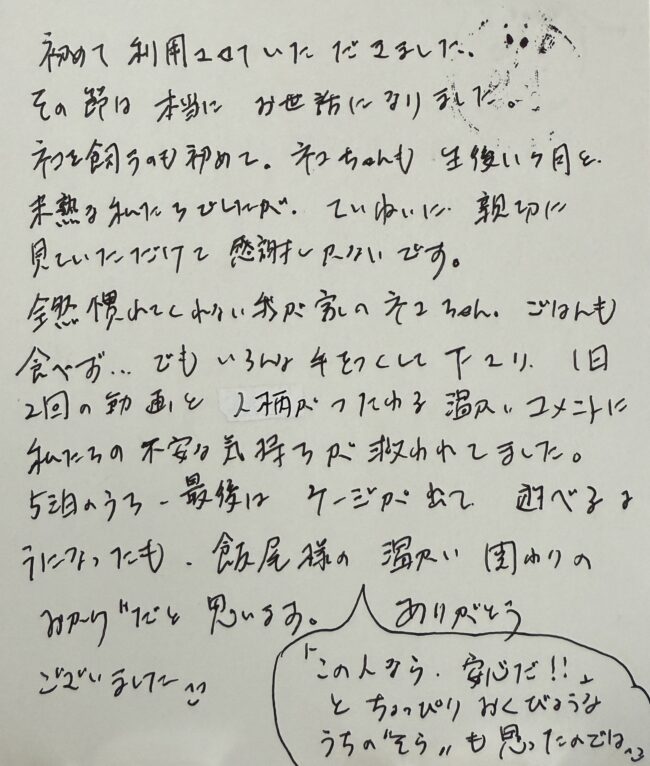 初めて利用させていただきました。
その節は本当にお世話になりました。
ネコを飼うのも初めて。ネコちゃんも生後6ヶ月と
未熟な私たちでしたが、ていねいに親切に
見ていただけて感謝しかないです。
全然慣れてくれない我が家のネコちゃん。ごはんも
食べず…でもいろんな手をつくして下さり、1日
2回の動画と人柄がつたわる温かいコメントに
私たちの不安な気持ちが救われてました。
5泊のうち、最後はケージが出て遊べるよ
うになったも、飯尾様の温かい関わりの
おかげだと思います。ありがとう
ございました
「この人なら、安心だ!!」
とちょっぴりおくびょうな
うちの"そら"も思ったのでは^3